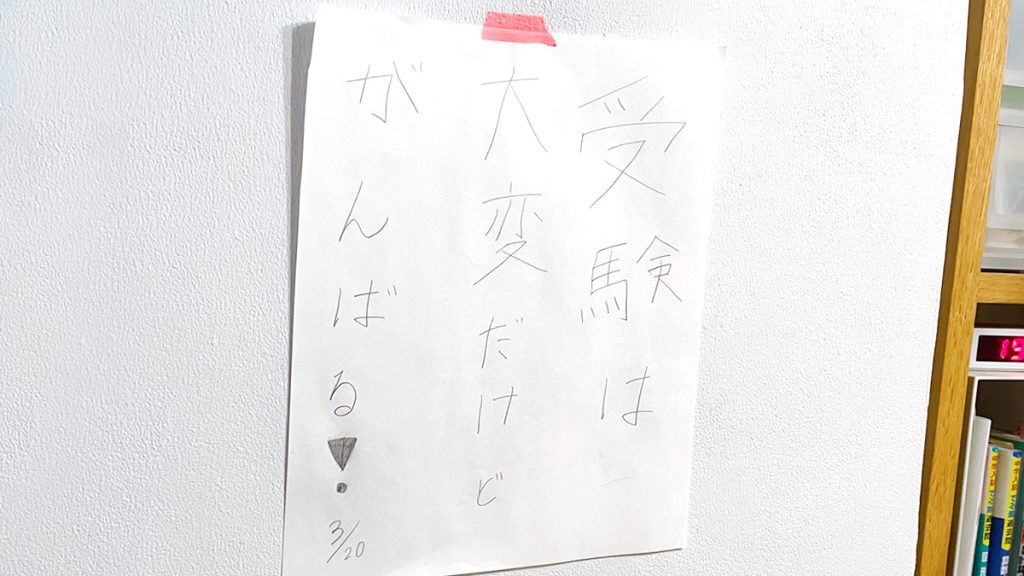 受験は
大変だけど
がんばる!
3/20